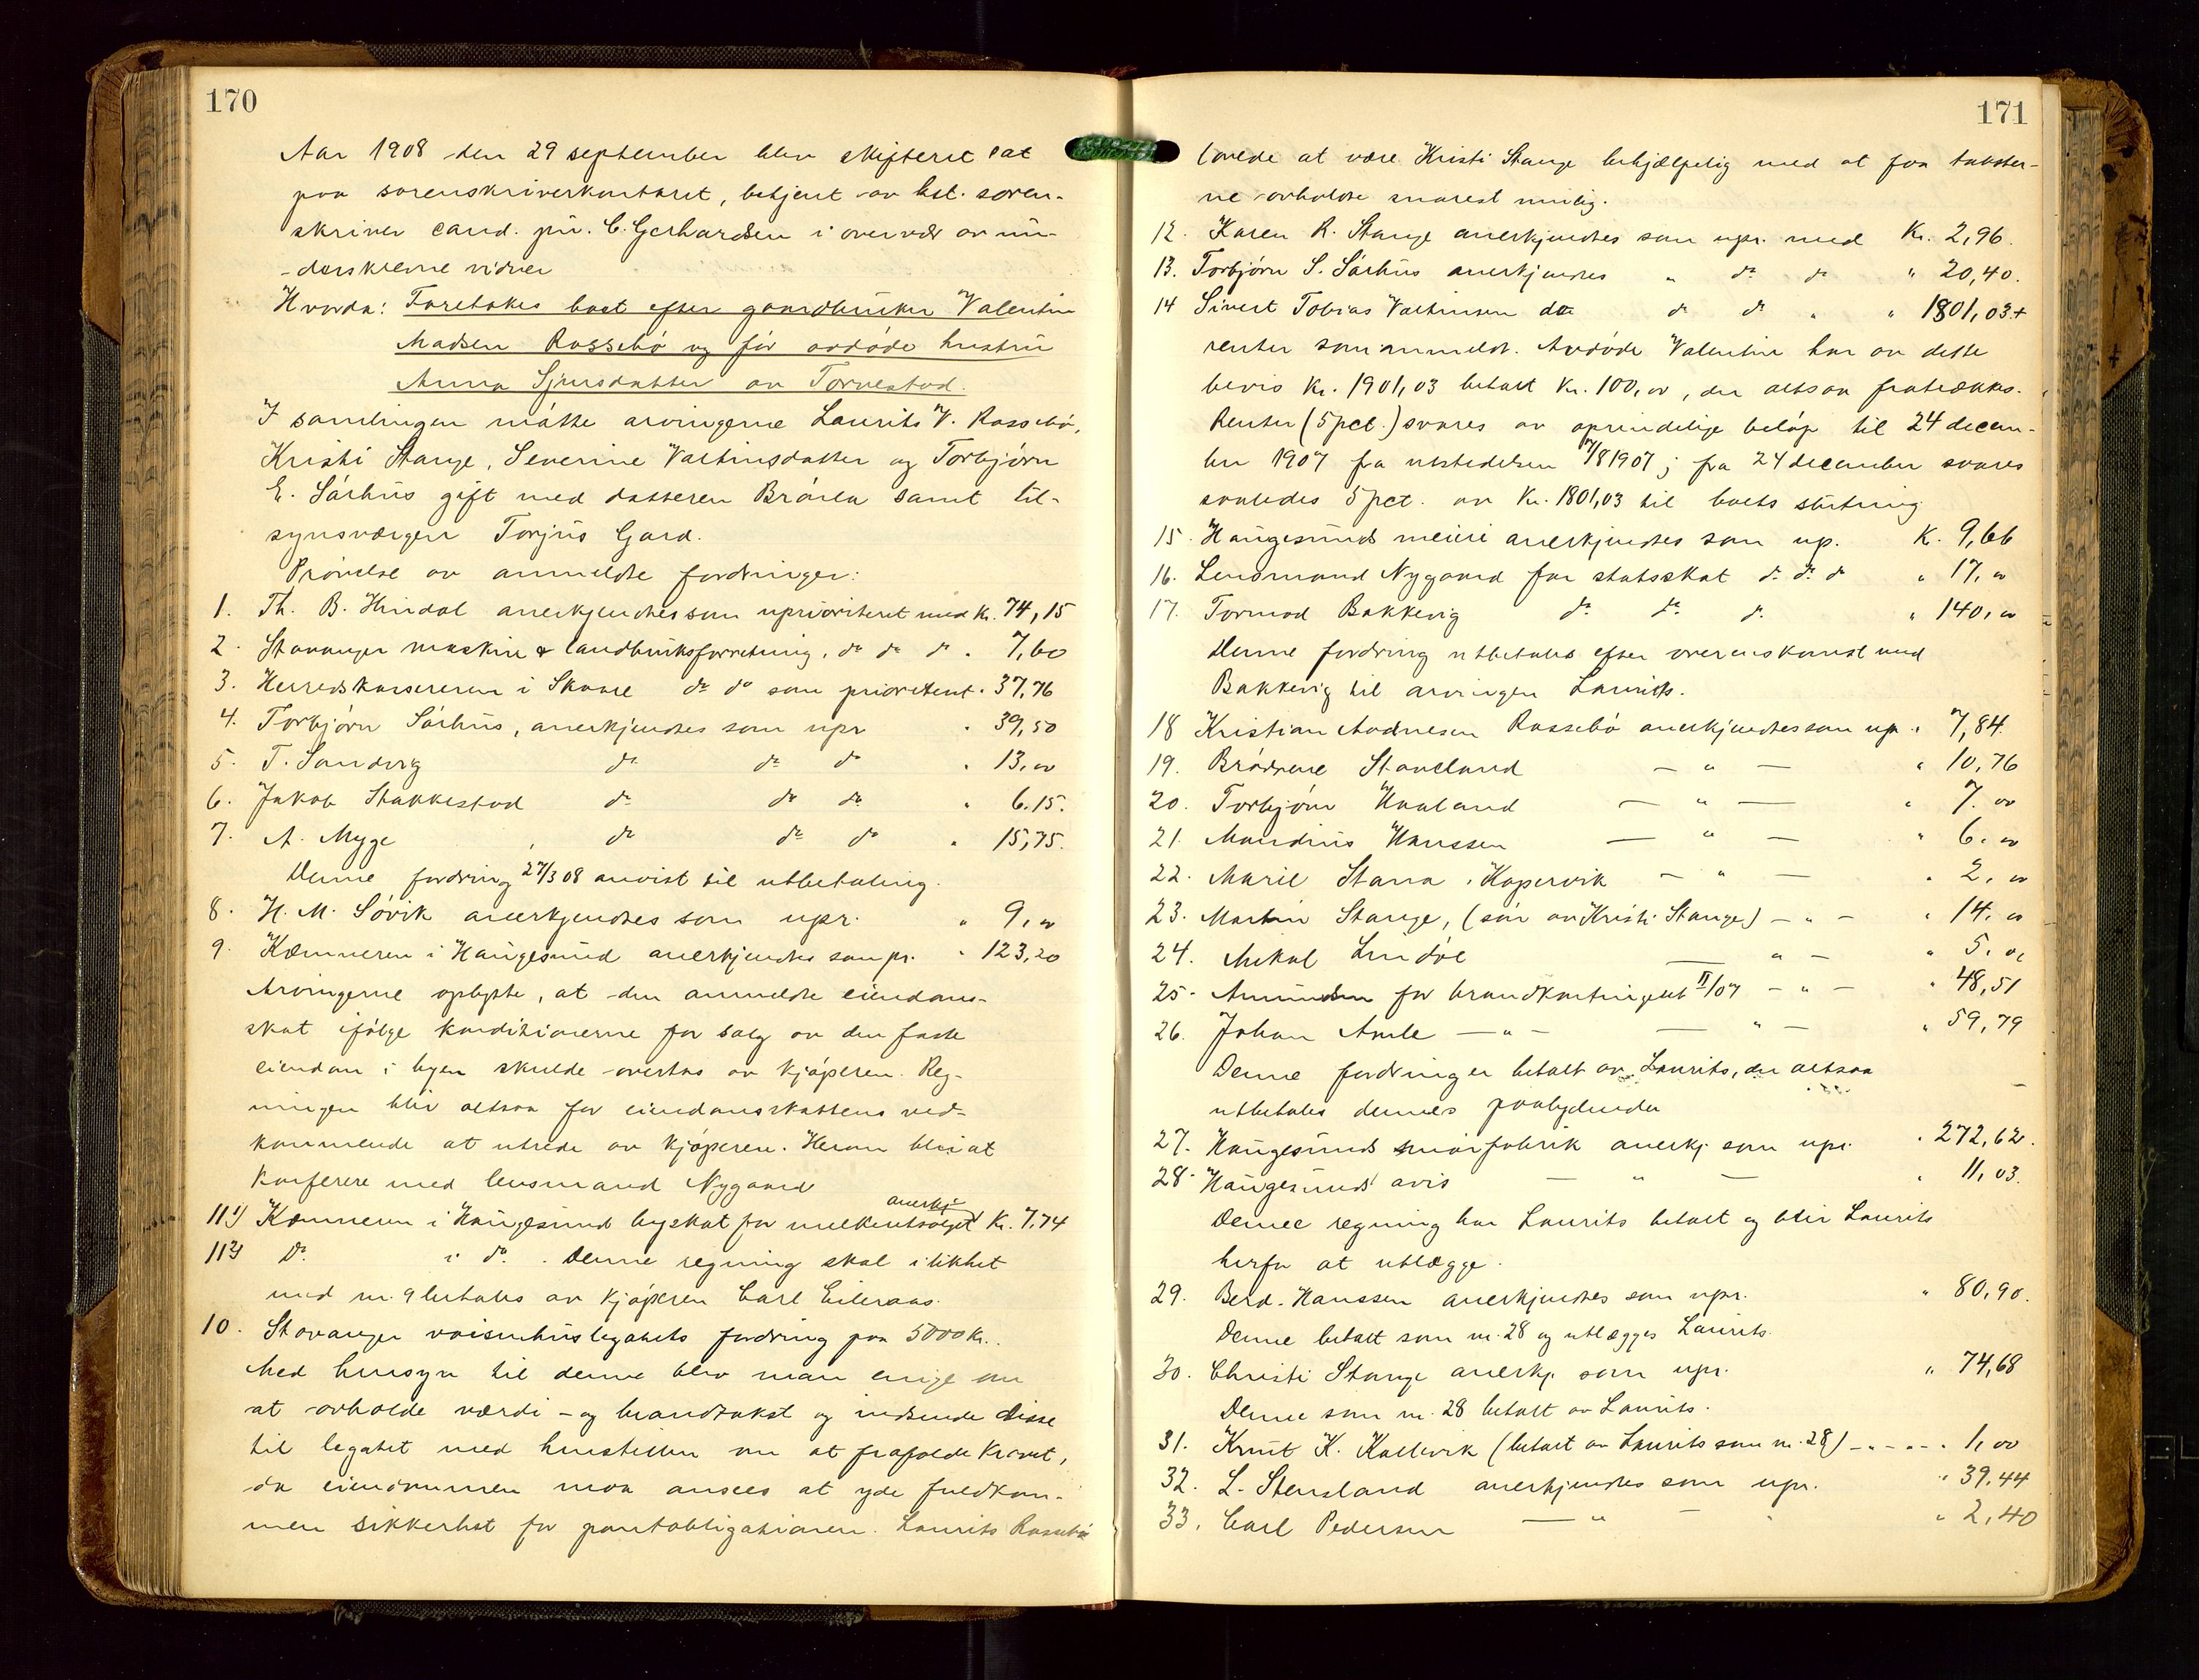 170
Aar 1908 den 29 september blev skifteret sat
paa sorenskriverkontoret, betjent av kst. soren-
skriver cand. jur. C. Gerhardsen i overvær av un-
derskrevne vidner
Hvorda: Foretokes boet efter gaardbruker Valentin
Madsen Rossebø og før avdøde hustru
Anna Sjursdatter av Torvestad.
I samlingen møtte arvingerne Laurits V. Rossebø,
Kristi Stange, Severine Valtinsdatter og Torbjørn
E. Sørhus gift med datteren Brørla samt til-
synsværgen Torjus Gard.
Prøvelse av anmeldte fordringer:
1. Th. B. Hindal anerkjendtes som uprioriteret med Kr. 74,15
2. Stavanger maskin & landbruksforretning, do do do " 7,60
3. Herredskassereren i Skaare do do som prioritert " 37,76
4. Torbjørn Sørhus, anerkjendtes som upr " 39,50
5. T. Sandvig do do do " 13,00
6. Jakob Stakkestad do do do " 6.15.
7. A. Myge do do do " 15,75.
Denne fordring 27/3 08 anvist til utbetaling.
8. H. M. Søvik anerkjendtes som upr. " 9,00
9. Kæmneren i Haugesund anerkjendtes som pr. " 123,20
Arvingerne oplyste, at den anmeldte eiendoms-
skat ifølge konditionerne for salg av den faste
eiendom i byen skulde overtas av kjøperen. Reg-
ningen blir altsaa for eiendomsskattens ved-
kommende at utrede av kjøperen. Herom blir at
konferere med lensmand Nygaard
anerkj
11 1) Kæmneren i Haugesund byskat for melkeutsalget Kr. 7,74
11 2) Do i do. Denne regning skal i likhet
med nr. 9 betales av kjøperen Carl Eileraas.
10. Stavanger vaisenhuslegatets fordring paa 5000 Kr.
Med hensyn til denne blev man enige om
at avholde værdi- og brandtakst og indsende disse
til legatet med henstillen om at frafalde kravet,
da eiendommen maa ansees at yde fuldkom-
men sikkerhet for pantobligationen. Laurits Rossebø
171
lovede at være Kristi Stange behjælpelig med at faa takster-
ne avholdte snarest mulig.
12. Karen R. Stange anerkjendtes som upr. med Kr. 2,96.
13. Torbjørn S. Sørhus anerkjendtes " do do " 20,40.
14 Sivert Tobias Valtinsen do do do " " 1801,03 +
renter som anmeldt. Avdøde Valentin har av dette
bevis Kr. 1901,03 betalt Kr. 100,00, der altsaa fratrækkes.
Renter (5 pct.) svares av oprindelige beløp til 24 decem-
ber 1907 fra utstedelsen /8 1907; fra 24 december svares
saaledes 5 pct. av Kr. 1801,03 til boets slutning
15. Haugesunds meieri anerkjendtes som up. K. 9,66
16. Lensmand Nygaard for statsskat do do do " 17,00
17. Tormod Bakkevig do do do " 140,00
Denne fordring utbetales efter overenskomst med
Bakkevig til arvingen Laurits.
18 Kristian Andresen Rossebø anerkjendtes som up " 7,84.
19. Brødrene Staveland — " — " 10,76
20. Torbjørn Haaland — " — " 7.00
21. Mandius Hanssen — " — " 6.00
22. Marie Stava i Kopervik — " — " 2,00
23. Martin Stange, (søn av Kristi Stange) — " — " 14,00
24. Mikal Lindøe — " — " 5,00
25. Amundsen for brandkontingent II/07 — " — " 48,51
26. Johan Amle — " — — " — " 59,79
Denne fordring er betalt av Laurits, der altsaa
utbetales dennes paalydende
27. Haugesunds smørfabrik anerkj. som upr. " 272,62.
28. Haugesunds avis — " — " 11,03.
Denne regning har Laurits betalt og blir Laurits
herfor at utlægge.
29. Berd. Hanssen anerkjendtes som upr. " 80,90.
Denne betalt som nr. 28 og utlægges Laurits.
30. Christi Stange anerkj. som upr. " 74,68
Denne som nr. 28 betalt av Laurits.
31. Knut K. Kallevik (betalt av Laurits som nr. 28) — " — " 1,00
32. L. Stensland anerkjendtes som upr. " 39,44
33. Carl Pedersen — " — " 2,40